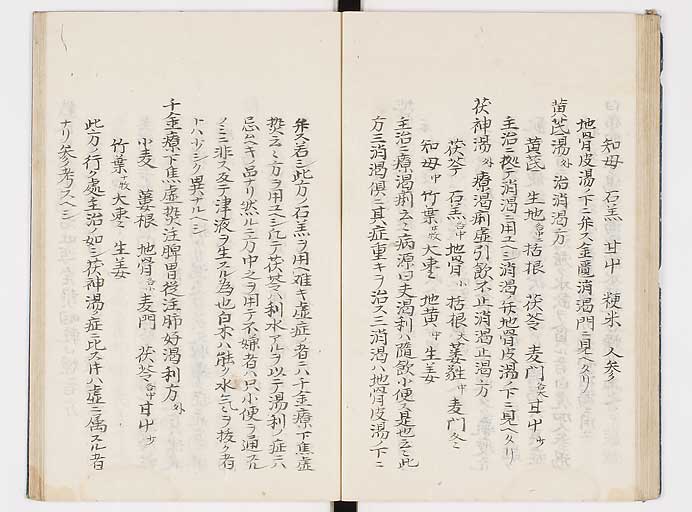 知母 石羔 甘艸 粳米 人参
地骨皮湯ノ下ニ弁ス金匱消渇門ニ見ヘタリ
黄芪湯 外 治消渇方
黄芪 生地 栝根 茯苓 麦門 甘艸 少
主治ニ拠テ消渇ニ用ユヘシ消渇ノ弁地骨皮湯ノ下ニ見ヘタリ
茯神湯 外 療渇痢虚引飲不止消渇止渇方
茯苓 石羔 地骨 小 栝根 大 萎蕤 中 麦門
知母 中 竹葉 大棗 地黄 中 生姜
主治ニ療渇痢云々病源曰夫渇利ハ随飲小便ス是也云々此
方三消渇倶ニ其症重キヲ治ス三消渇ハ地骨皮湯ノ下ニ
弁ス若シ此方ノ石羔ヲ用ヘ難キ虚症ノ者ニハ千金療下焦虚
熱云々ノ方ヲ用ユヘシ凡テ茯苓ハ利水アルヲ以テ渇利ノ症ニハ
忌ヘキ品ナリ然ルニ方中之ヲ用テ不嫌者ハ只小便ヲ通スル
ノミニ非ス反テ津液ヲ生スル為也白朮ハ能ク水ヲ抜ク者
トハ少シク異ナルヘシ
千金療下焦虚熱注脾胃従注肺好渇利方 外
小麦 萎根 地骨 麦門 茯苓 甘艸 少
竹葉 大棗 生姜
此方ノ行ク處主治ノ如シ茯神湯ノ症ニ比スレハ虚ニ属スル者
ナリ参考スヘシ